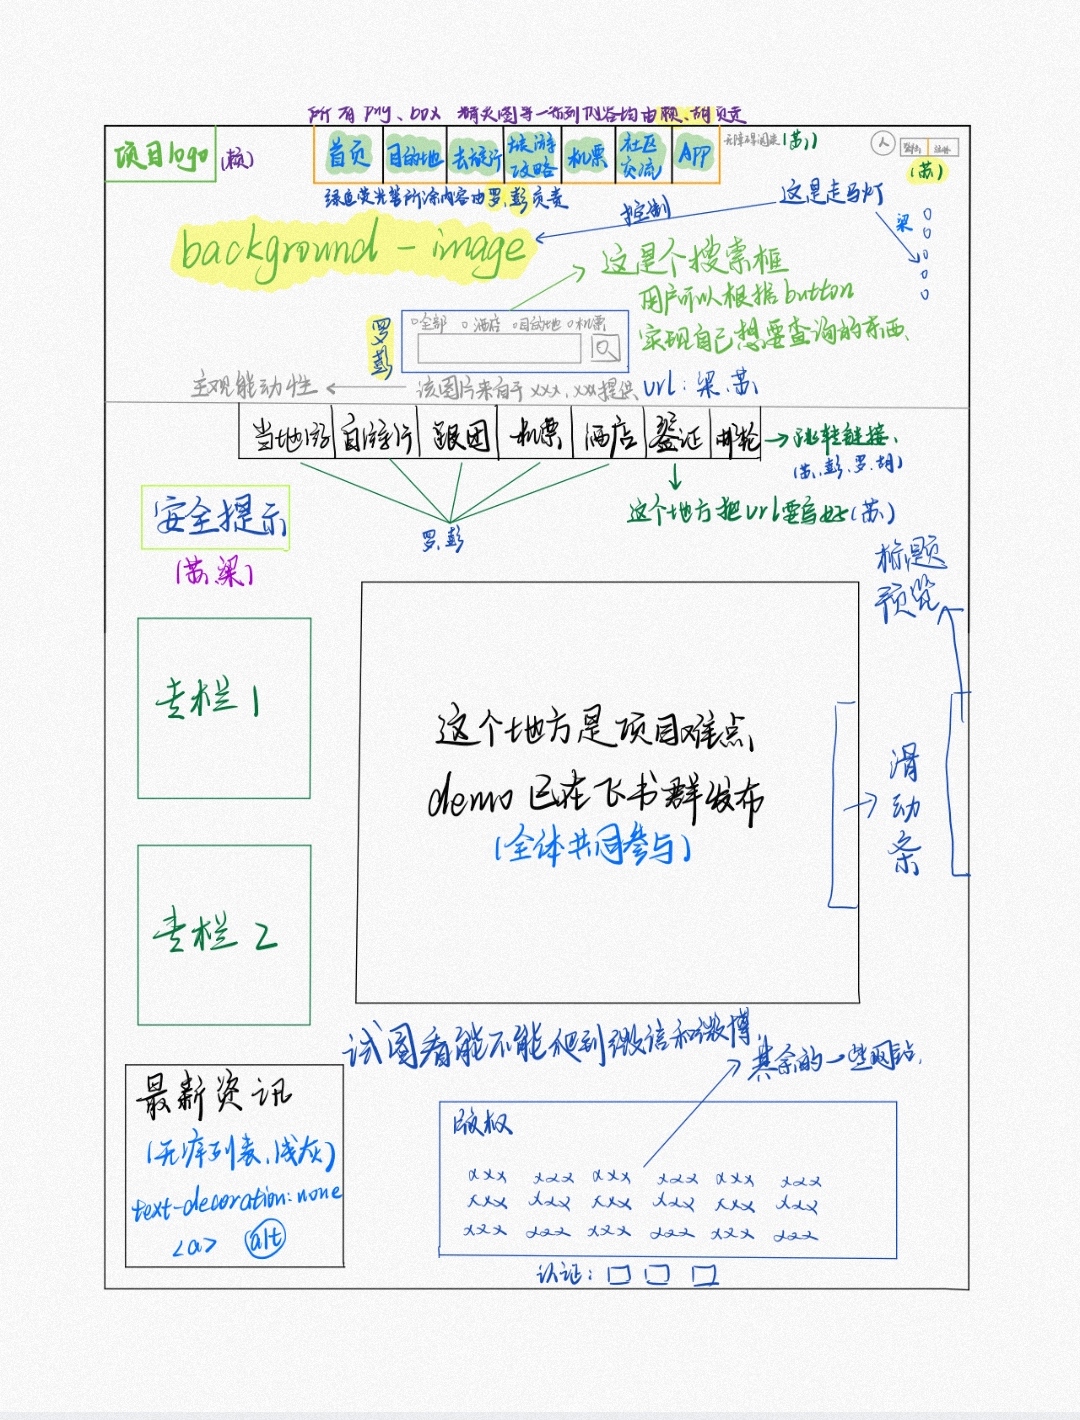 所有png、box 精灵图等一系列内容均由赖、胡负责
项目logo (赖)
首页 目的地 去旅行 旅游攻略 机票 社区交流 App
无障碍阅读 (苏)
(苏)
绿色荧光笔所涂内容由罗、彭负责
控制
这是走马灯
梁
background-image
这是个搜索框
用户可以根据button
实现自己想要查询的东西、
罗彭
全部 酒店 目的地 机票
主观能动性
该图片来自于xxx,xxx提供
url:梁、苏
当地游 自由行 跟团 机票 酒店 签证 邮轮
跳转链接、
(苏、彭、罗、胡)
这个地方把url要写好(苏)
罗、彭
安全提示
(苏、梁)
标题
预览
专栏1
这个地方是项目难点、
demo已在飞书群发布
(全体共同参与)
滑动条
专栏2
试图看能不能爬到微信和微博、
其余的一些网站、
最新资讯
(无序列表、浅灰)
text-decoration:none
<a> alt
版权
xxx xxx xxx xxx xxx xxx
xxx xxx xxx xxx xxx xxx
xxx xxx xxx xxx xxx xxx
认证: